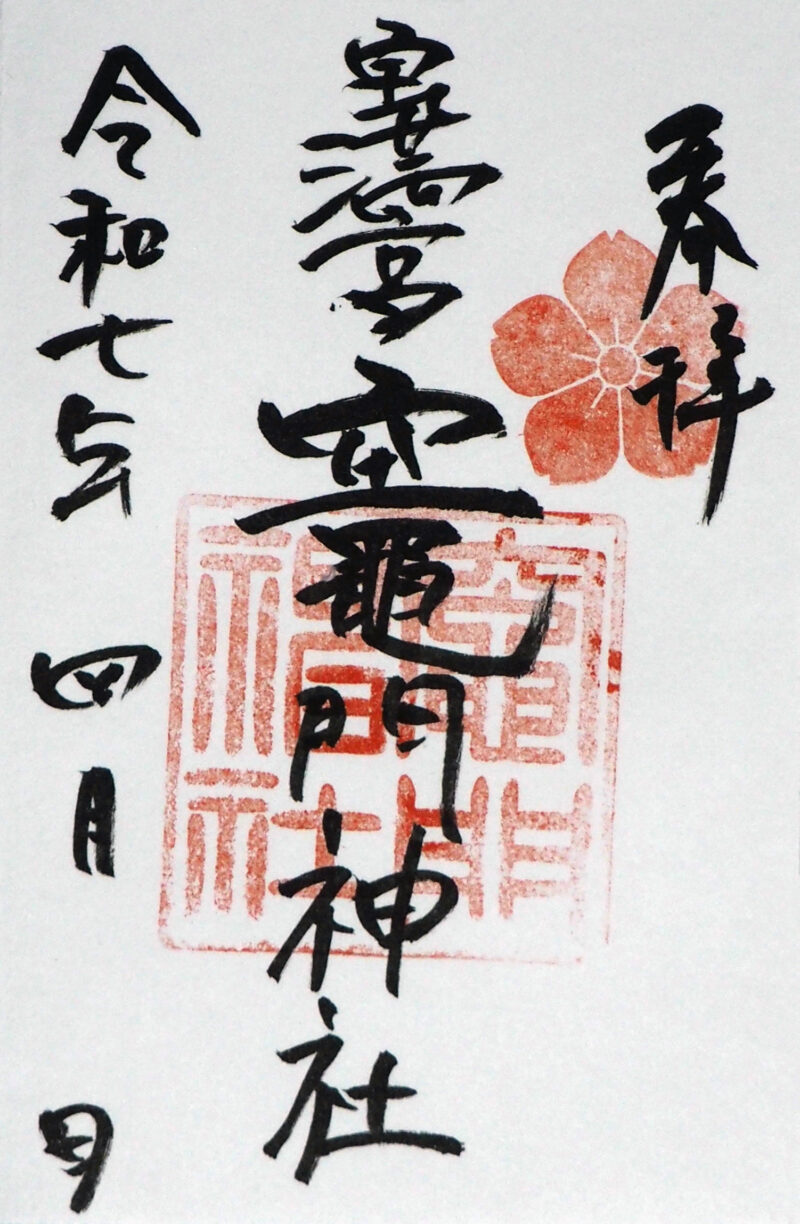 奉拝
寳満宮
竈門神社
令和七年 四月 日
竈門神社